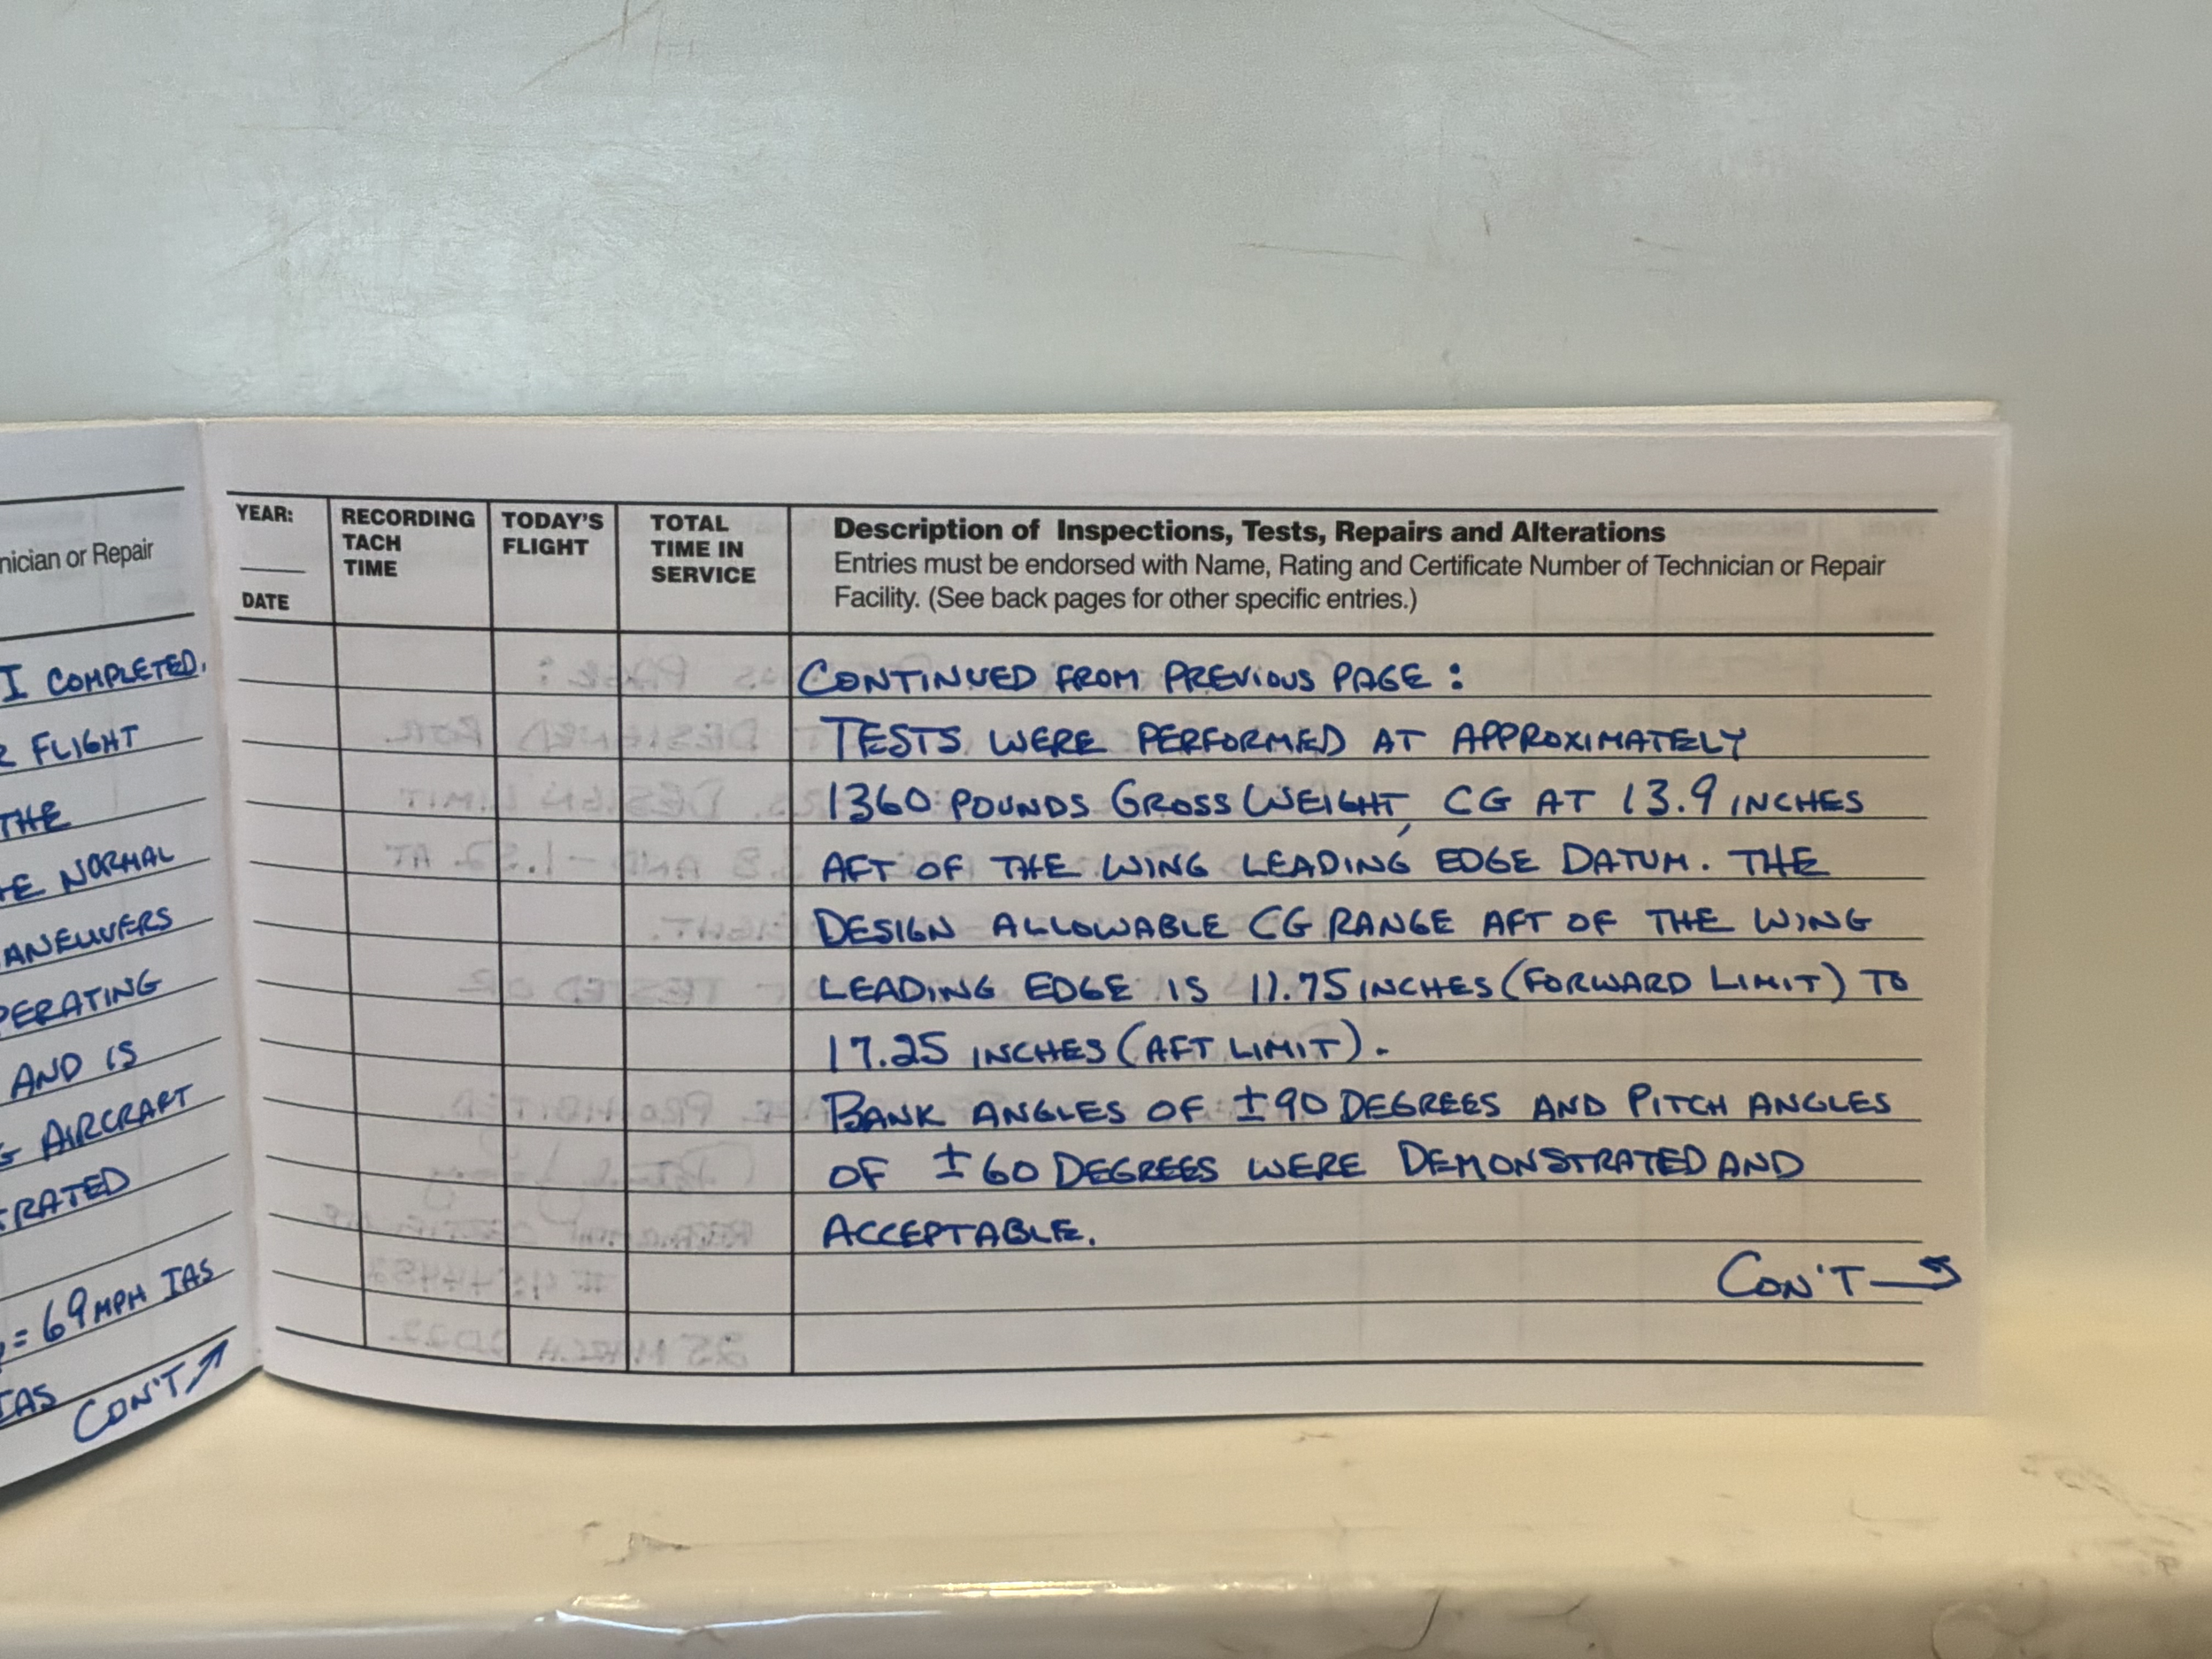 nician or Repair
I COMPLETED.
FLIGHT
THE
NORMAL
AND IS
AIRCRAFT
= 69 MPH IAS
IAS
CON'T
YEAR:
DATE
RECORDING
TACH
TIME
TODAY'S
FLIGHT
TOTAL
TIME IN
SERVICE
Description of Inspections, Tests, Repairs and Alterations
Entries must be endorsed with Name, Rating and Certificate Number of Technician or Repair
Facility. (See back pages for other specific entries.)
CONTINUED FROM PREVIOUS PAGE :
TESTS WERE PERFORMED AT APPROXIMATELY
1360 POUNDS GROSS WEIGHT, CG AT 13.9 INCHES
AFT OF THE WING LEADING EDGE DATUM. THE
DESIGN ALLOWABLE CG RANGE AFT OF THE WING
LEADING EDGE IS 11.75 INCHES (FORWARD LIMIT) TO
17.25 INCHES (AFT LIMIT).
BANK ANGLES OF ±90 DEGREES AND PITCH ANGLES
OF ±60 DEGREES WERE DEMONSTRATED AND
ACCEPTABLE.
CON'T